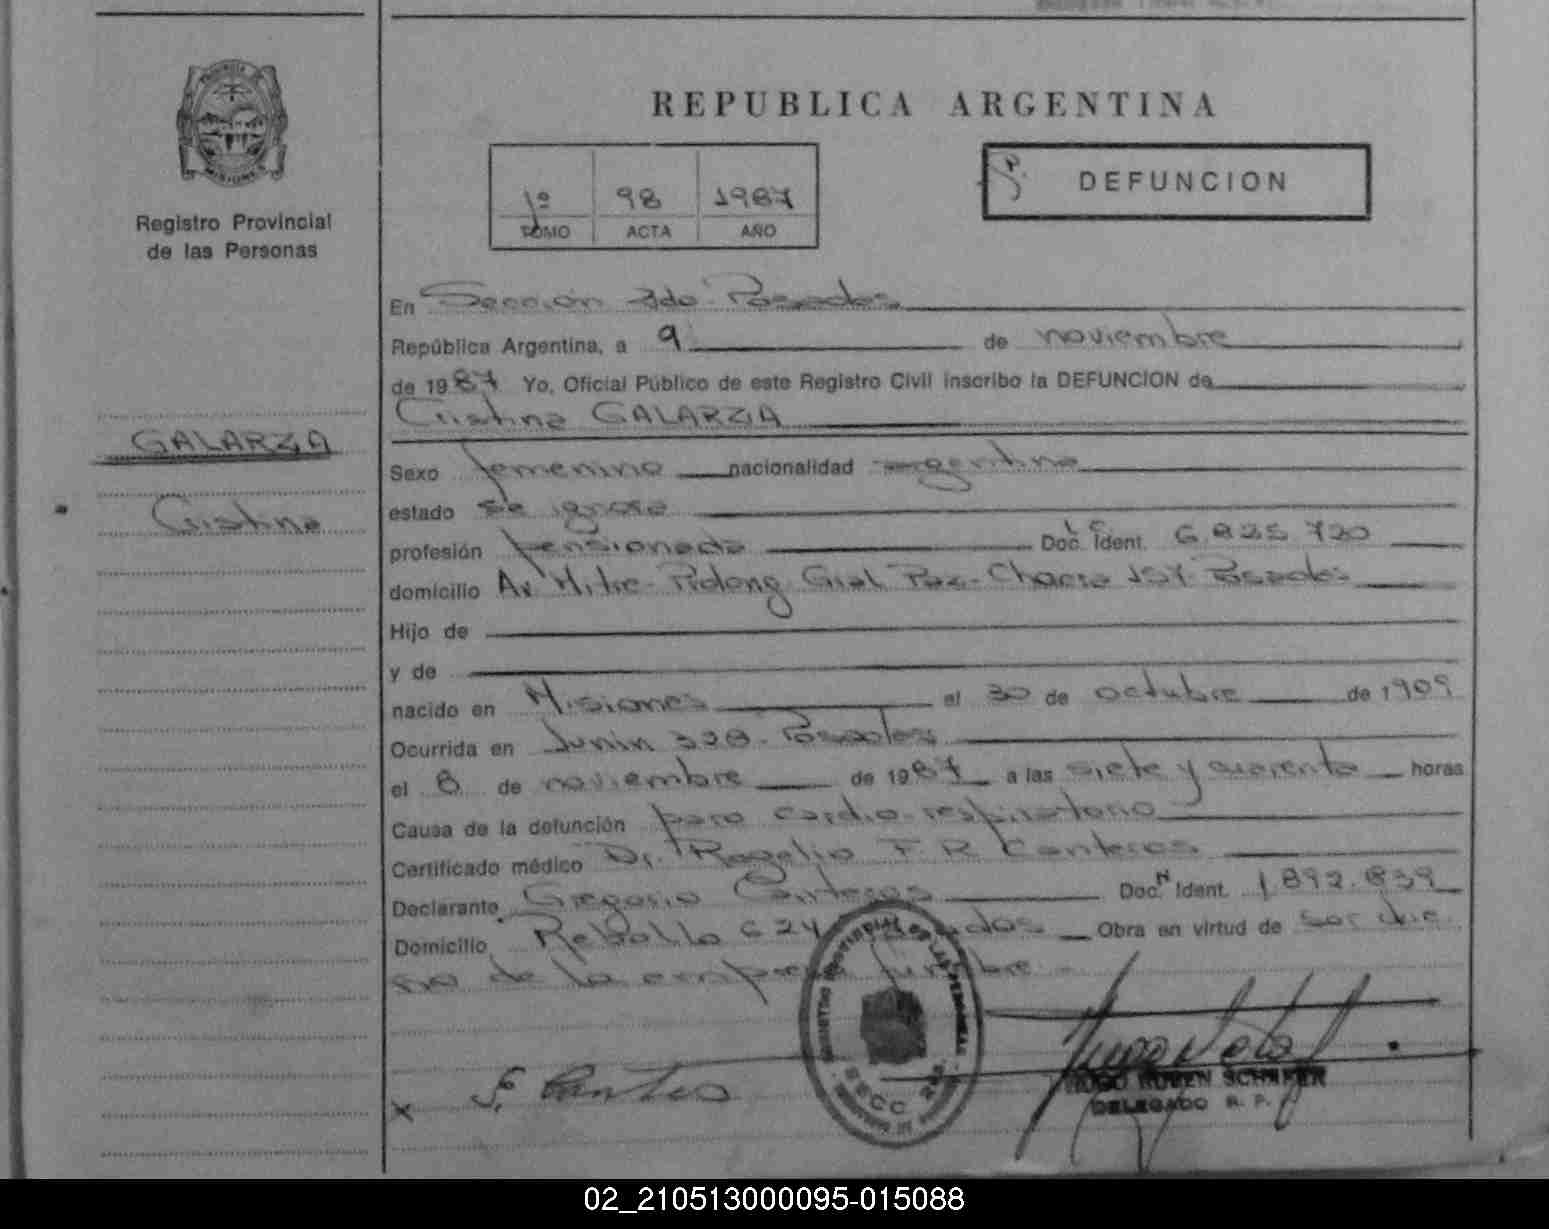 PROVINCIA
MISIONES
Registro Provincial
de las Personas
GALARZA
Cristina
REPUBLICA ARGENTINA
1º 98 1987
TOMO ACTA AÑO
DEFUNCION
En Sección 2da. Posadas
República Argentina, a 9 de noviembre
de 1987 Yo, Oficial Público de este Registro Civil inscribo la DEFUNCION de
Cristina GALARZA
Sexo femenino nacionalidad argentina
estado se ignora
profesión pensionada Doc. Ident. L C 6.825.720
domicilio Av. Mitre - Prolong. Gral Paz - Chacra Posadas
Hijo de
y de
nacido en Misiones el 30 de octubre de 1909
Ocurrida en Junin - Posadas
el 8 de noviembre de 1987 a las siete y cuarenta horas
Causa de la defunción paro cardio-respiratorio
Certificado médico Dr. Rogelio F. R. Canteros
Declarante Gregorio Canteros Doc. Ident. 1.892.839
Domicilio Rebollo 624 Obra en virtud de ser due
ño de la empresa fúnebre -
REGISTRO PROVINCIAL DE LAS PERSONAS
SECC. 2da.
X
HUGO RUBEN SCHAFER
DELEGADO R. P.
02_210513000095-015088